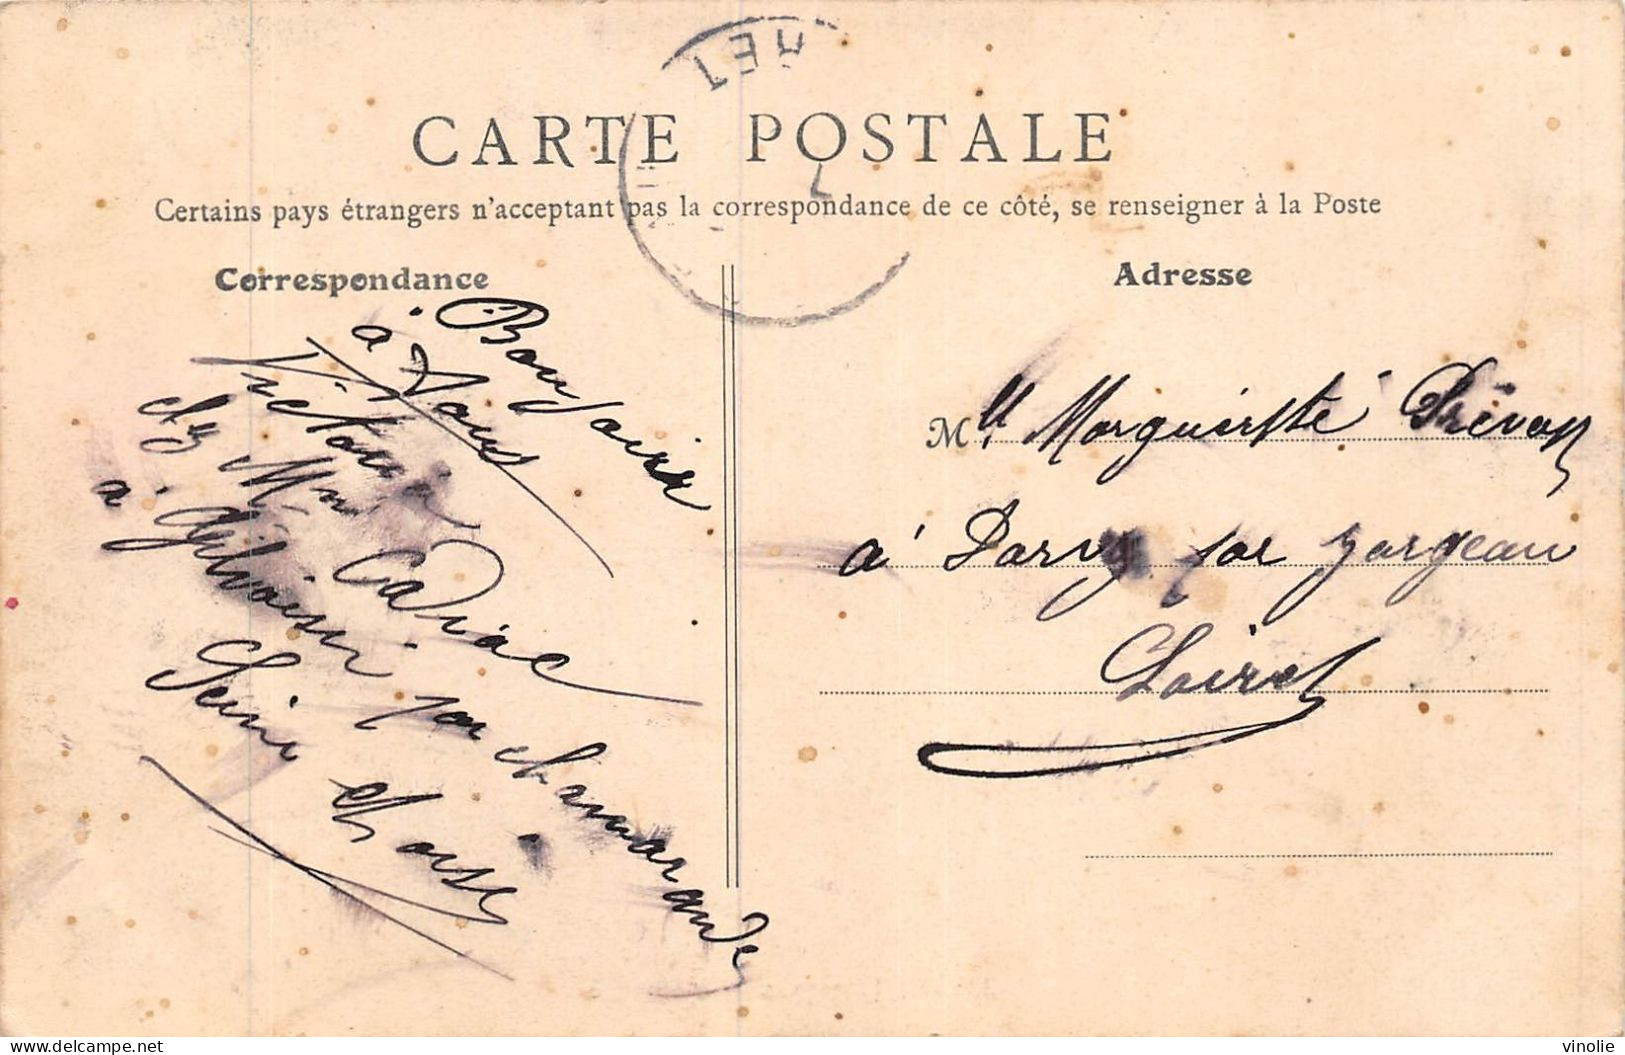 CARTE POSTALE
Certains pays étrangers n'acceptant pas la correspondance de ce côté, se renseigner à la Poste
Correspondance
Adresse
Bonjour
à Vous
Victoria
chez Mme Cadiac
à par chamarande
Seine et oise
Mlle Marguerite Prévost
à Darvoy par Jargeau
Loiret
delcampe.net
vinolie